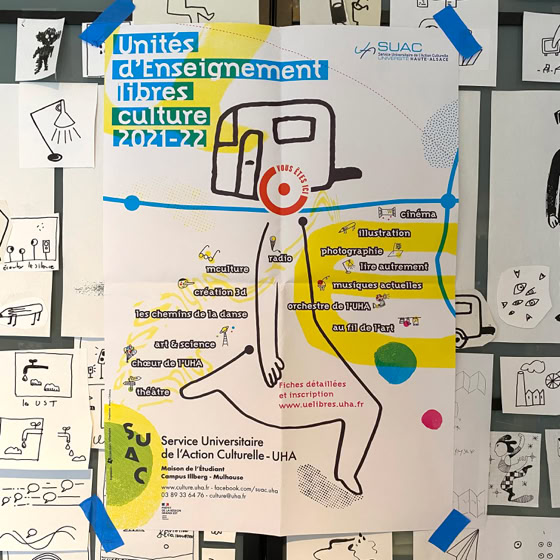 Unités
d'Enseignement
libres
culture
2021-22
SUAC
Service Universitaire de l'Action Culturelle
UNIVERSITÉ HAUTE-ALSACE
VOUS ÊTES ICI
cinéma
illustration
radio
photographie
lire autrement
mculture
création 3d
musiques actuelles
orchestre de l'UHA
les chemins de la danse
au fil de l'art
art & science
chœur de l'UHA
théâtre
Fiches détaillées
et inscription
www.uelibres.uha.fr
SUAC
Service Universitaire
de l'Action Culturelle - UHA
Maison de l'Étudiant
Campus Illberg - Mulhouse
www.culture.uha.fr - facebook.com/suac.uha
03 89 33 64 76 - culture@uha.fr
écouter le silence
la UST